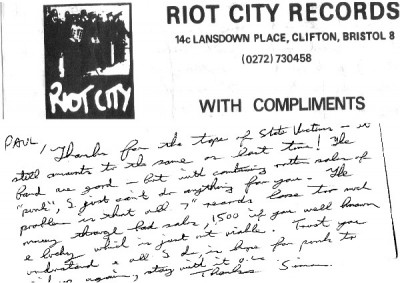 RIOT CITY RECORDS
14c LANSDOWN PLACE, CLIFTON, BRISTOL 8
(0272) 730458
RIOT CITY
WITH COMPLIMENTS
PAUL,
Thanks for the tape of State Victims – it
still amounts to the same as last time! The
band are good – but with continuing rotten sales of
"punk", I just can't do anything for you. The
problem is that all 7" records loose too much
money through bad sales, 1500 if you well known
& lucky which is just not viable. Trust you
understand & all I do is hope for punk to
again, stay with it
Thanks Simon